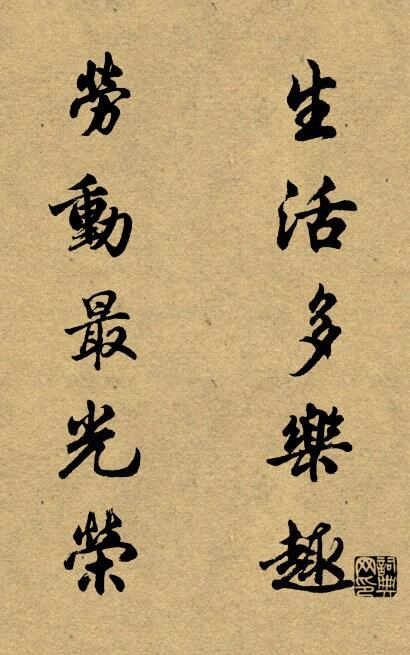 生活多樂趣
勞動最光榮
詞典網印